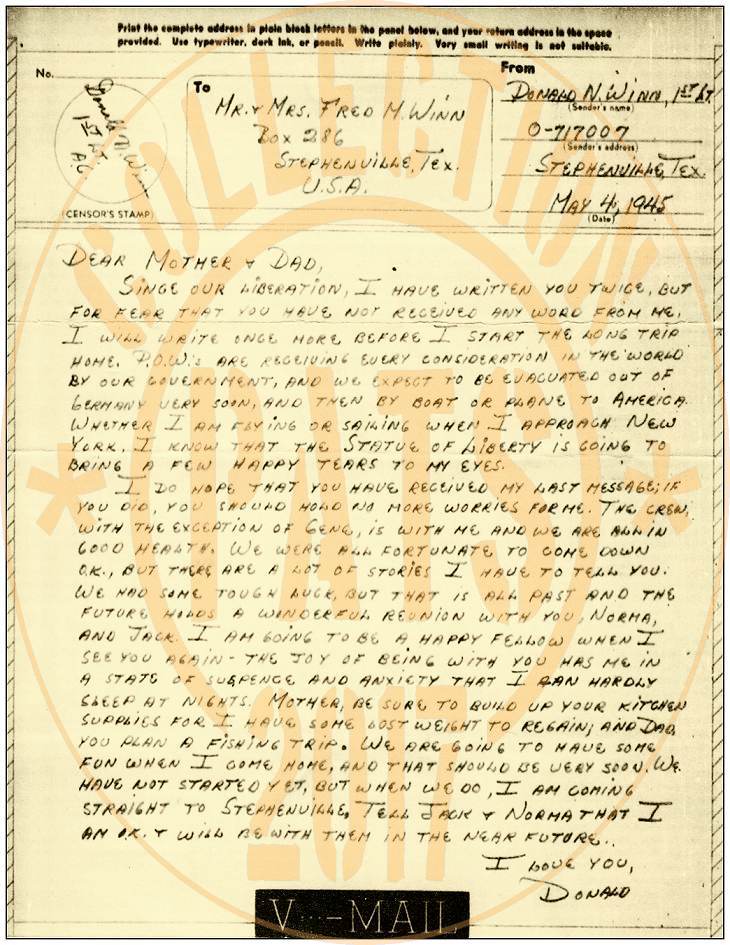 Print the complete address in plain block letters in the panel below, and your return address in the space
provided. Use typewriter, dark ink, or pencil. Write plainly. Very small writing is not suitable.
No.
Donald N. Winn
1ST LT.
A.C.
(CENSOR'S STAMP)
To
MR. & MRS. FRED M. WINN
BOX 286
STEPHENVILLE, TEX.
U.S.A.
From
DONALD N. WINN, 1ST LT.
(Sender's name)
O-717007
(Sender's address)
STEPHENVILLE, TEX.
MAY 4, 1945
(Date)
DEAR MOTHER & DAD,
SINCE OUR LIBERATION, I HAVE WRITTEN YOU TWICE, BUT
FOR FEAR THAT YOU HAVE NOT RECEIVED ANY WORD FROM ME,
I WILL WRITE ONCE MORE BEFORE I START THE LONG TRIP
HOME. P.O.W.'s ARE RECEIVING EVERY CONSIDERATION IN THE WORLD
BY OUR GOVERNMENT, AND WE EXPECT TO BE EVACUATED OUT OF
GERMANY VERY SOON, AND THEN BY BOAT OR PLANE TO AMERICA.
WHETHER I AM FLYING OR SAILING WHEN I APPROACH NEW
YORK, I KNOW THAT THE STATUE OF LIBERTY IS GOING TO
BRING A FEW HAPPY TEARS TO MY EYES.
I DO HOPE THAT YOU HAVE RECEIVED MY LAST MESSAGE; IF
YOU DID, YOU SHOULD HOLD NO MORE WORRIES FOR ME. THE CREW,
WITH THE EXCEPTION OF GENE, IS WITH ME AND WE ARE ALL IN
GOOD HEALTH. WE WERE ALL FORTUNATE TO COME DOWN
O.K., BUT THERE ARE A LOT OF STORIES I HAVE TO TELL YOU.
WE HAD SOME TOUGH LUCK, BUT THAT IS ALL PAST AND THE
FUTURE HOLDS A WONDERFUL REUNION WITH YOU, NORMA,
AND JACK. I AM GOING TO BE A HAPPY FELLOW WHEN I
SEE YOU AGAIN - THE JOY OF BEING WITH YOU HAS ME IN
A STATE OF SUSPENCE AND ANXIETY THAT I CAN HARDLY
SLEEP AT NIGHTS. MOTHER, BE SURE TO BUILD UP YOUR KITCHEN
SUPPLIES FOR I HAVE SOME LOST WEIGHT TO REGAIN; AND DAD,
YOU PLAN A FISHING TRIP. WE ARE GOING TO HAVE SOME
FUN WHEN I COME HOME, AND THAT SHOULD BE VERY SOON. WE
HAVE NOT STARTED YET, BUT WHEN WE DO, I AM COMING
STRAIGHT TO STEPHENVILLE. TELL JACK & NORMA THAT I
AM O.K. & WILL BE WITH THEM IN THE NEAR FUTURE..
I LOVE YOU,
DONALD
V···-MAIL